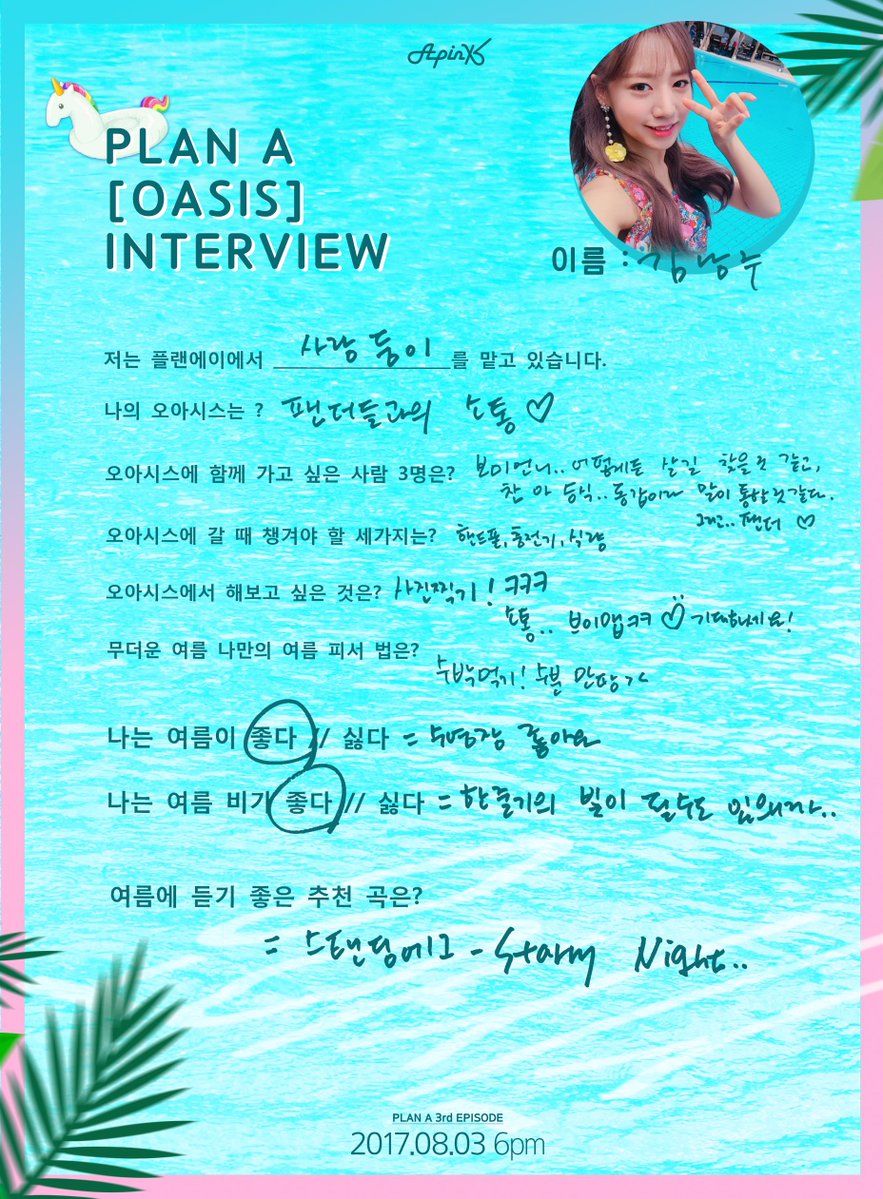 Apink
PLAN A
[OASIS]
INTERVIEW
이름 : 김남주
저는 플랜에이에서 사랑둥이를 맡고 있습니다.
나의 오아시스는 ? 팬더들과의 소통 ♡
오아시스에 함께 가고 싶은 사람 3명은? 보미언니.. 어떻게든 살길 찾을것 같고,
참 아 승식.. 동갑이라 말이 통할것 같다.
그리고.. 팬더 ♡
오아시스에 갈 때 챙겨야 할 세가지는? 핸드폰, 충전기, 식량
오아시스에서 해보고 싶은 것은? 사진찍기! ㅋㅋㅋ
소통.. 브이앱ㅋㅋ ♡ 기대하세요!
무더운 여름 나만의 여름 피서 법은?
수박먹기! 수분
나는 여름이 좋다 // 싫다 = 수영장 좋아요
나는 여름 비가 좋다 // 싫다 = 한줄기의 빛이 될수도 있으니까..
여름에 듣기 좋은 추천 곡은?
= 스탠딩에그 - Starry Night..
PLAN A 3rd EPISODE
2017.08.03 6pm